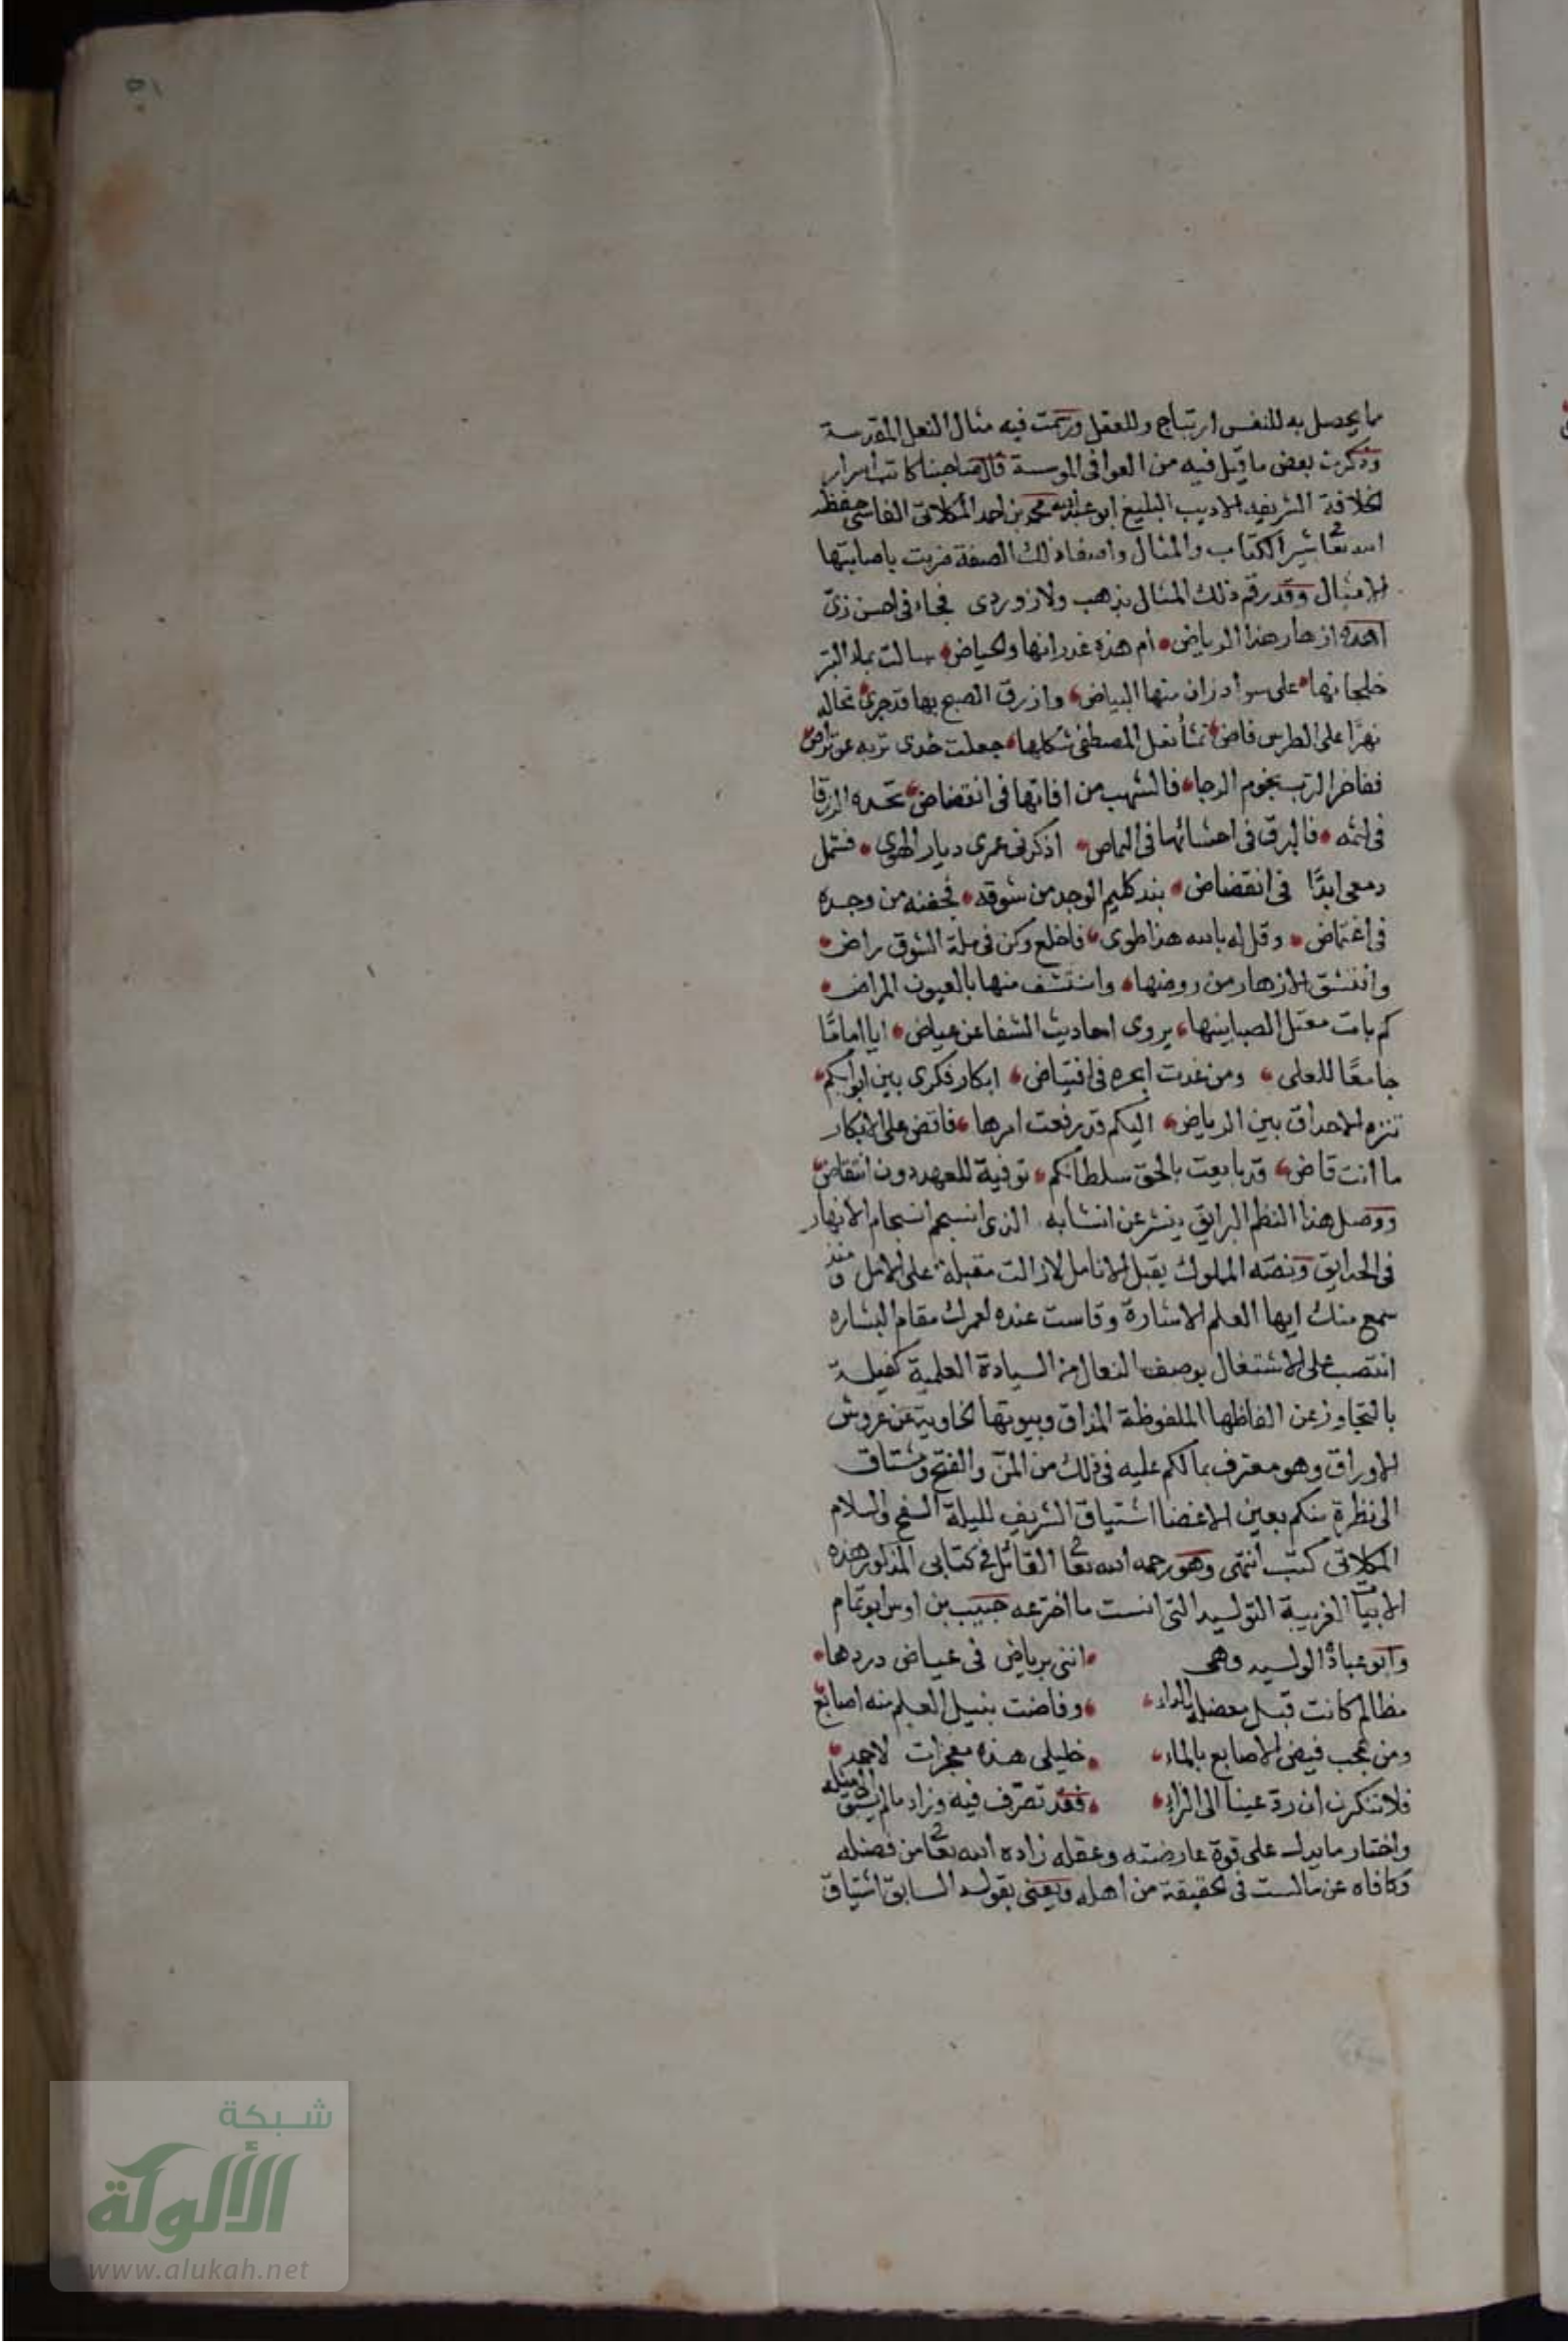 ٥١
ما يحصل به للنفس ارتياح وللعقل ورسمت فيه مثال النعل المقدسة
وذكرت بعض ما قيل فيه من القوافى الموسسة قال صاحبنا كاتب اسرار
الخلافة الشريفه الاديب البليغ ابو عبد الله محمد بن احمد المكلاتى الفاسى حفظه
الله تعا شير الكتاب والمثال واصفا ذلك الصفة ضربت باصابتها
الامثال وقد رقم ذلك المثال بذهب ولازوردى فجاء فى احسن زىّ
اهذه ازهار هذا الرياض ام هذه غدرانها والحياض سالت بماء التبر
خلجانها على سواد زان منها البياض وازرق الصبح بها قد جرى تخاله
نهرًا على الطرس فاض تمثا نعل المصطفى شكلها جعلت خدى تربه عن تراض
ففاخر الترب نجوم الدجا فالشهب من افاقها فى انقضاض تحده الزرقا
فى لثمه فالبرق فى احشائها فى ايماض اذكرنى عمرى ديار الهوى فشمل
دمعى ابدًا فى انقضاض بند كليم الوجد من شوقه فجفنه من وجده
فى اغتماض وقل له بالله هذا طوى فاخلع وكن فى ملة الشوق راض
وانتشق الازهار من روضها وانتشف منها بالعيون المراض
كم بات معتل الصبا بينها يروى احاديث الشفا عن عياض ايا اماما
جامعًا للعلى ومن غدت ابحره فى افتياض ابكار فكرى بين ابوابكم
تنزه الاحداق بين الرياض اليكم قد رفعت امرها فاقض على الابكار
ما انت قاض قد بايعت بالحق سلطانكم توفية للعهد دون انتقاض
ووصل هذا النظم الرايق بنثر عن انشابه الذى انسجم انسجام الانهار
فى الحدايق ونصّه المملوك يقبل الانامل لازالت مقبلة على الامل ومنذ
سمع منك ايها العلم الاشارة وقامت عنده لعمرك مقام البشاره
انتصب على الاشتغال بوصف النعال من السيادة العلمية كفيلة
بالتجاوز عن الفاظها الملفوظة المذاق وبيوتها الخاوية عن عروش
الاوراق وهو معترف بما لكم عليه فى ذلك من المنّ والفتح ومشتاق
الى نظرة منكم بعين الاغضا اشتياق الشريف لليلة السفح والسلام
المكلاتى كتب انتهى وهو رحمه الله تعا القائل فى كتابى المذكور هذه
الابيات الغريبة التوليد التى انست ما اخترعه حبيب بن اوس ابو تمام
وابو عبادة الوليد وهى اننى برياض فى عياض دردها
مظالم كانت قبل معضلة بالداء وفاضت بنيل العلم منه اصابع
ومن عجب فيض الاصابع بالماء خليلى هذه معجزات لاحمد
فلا تنكرن ان ردّ عينا الى الراء فقد تصرّف فيه وزاد مالم يسبق الى مثله
واختار ما يدل على قوة عارضته وعقله زاده الله تعا من فضله
وكافاه عن مالست فى الحقيقة من اهله ويعنى بقوله السابق اشتياق
شبكة
الألوكة
www.alukah.net